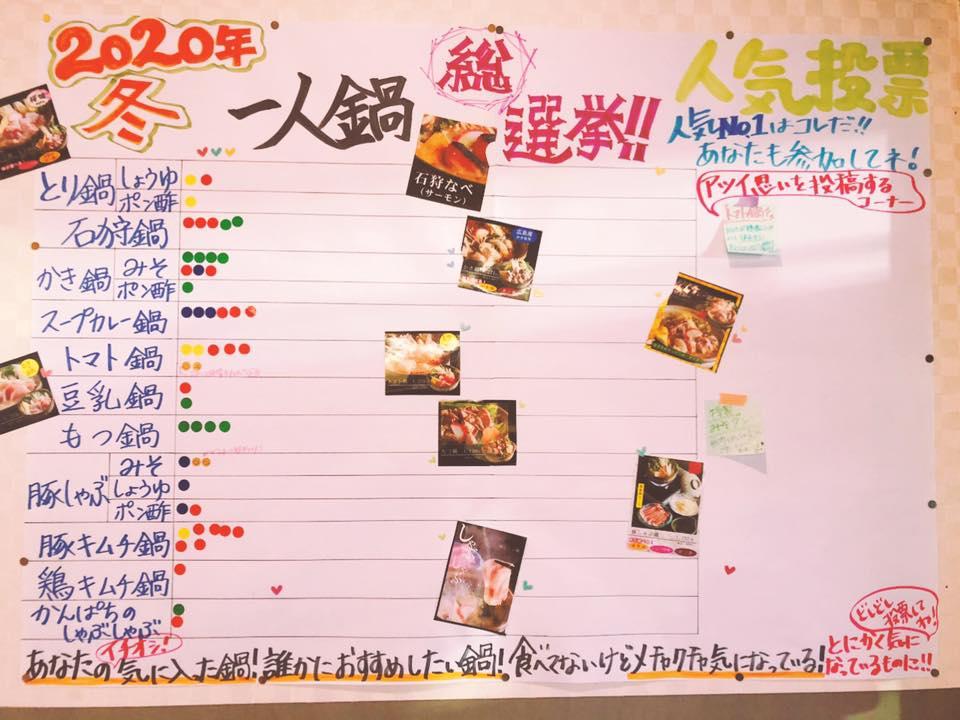 2020年
冬
一人鍋
総
選挙!!
人気投票
人気No.1はコレだ!!
あなたも参加してネ!
アツイ思いを投稿する
コーナー
とり鍋
しょうゆ
ポン酢
石狩鍋
かき鍋
みそ
ポン酢
スープカレー鍋
トマト鍋
豆乳鍋
もつ鍋
豚しゃぶ
みそ
しょうゆ
ポン酢
豚キムチ鍋
鶏キムチ鍋
かんぱちの
しゃぶしゃぶ
イチオシ!
石狩なべ
(サーモン)
広島産
しゃぶ
あなたの気に入った鍋!誰かにおすすめしたい鍋!食べてないけどメチャクチャ気になっている!
どしどし
投票して
ね!
とにかく気に
なっているものに!!